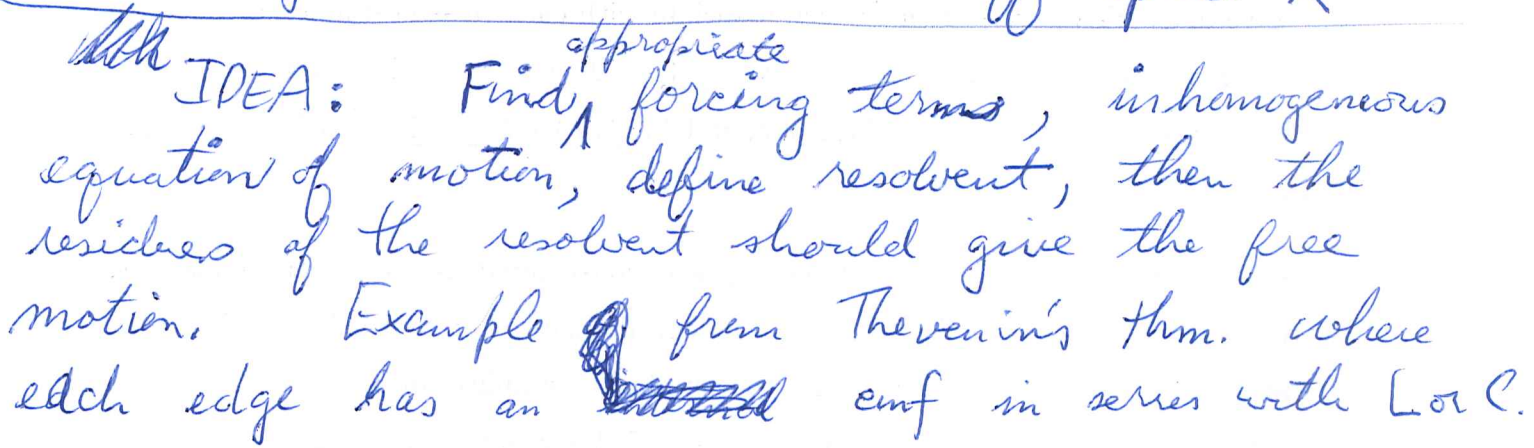 appropriate
IDEA: Find ∧ forcing terms, inhomogeneous
equation of motion, define resolvent, then the
residues of the resolvent should give the free
motion. Example from Thevenin's thm. where
each edge has an emf in series with L or C.